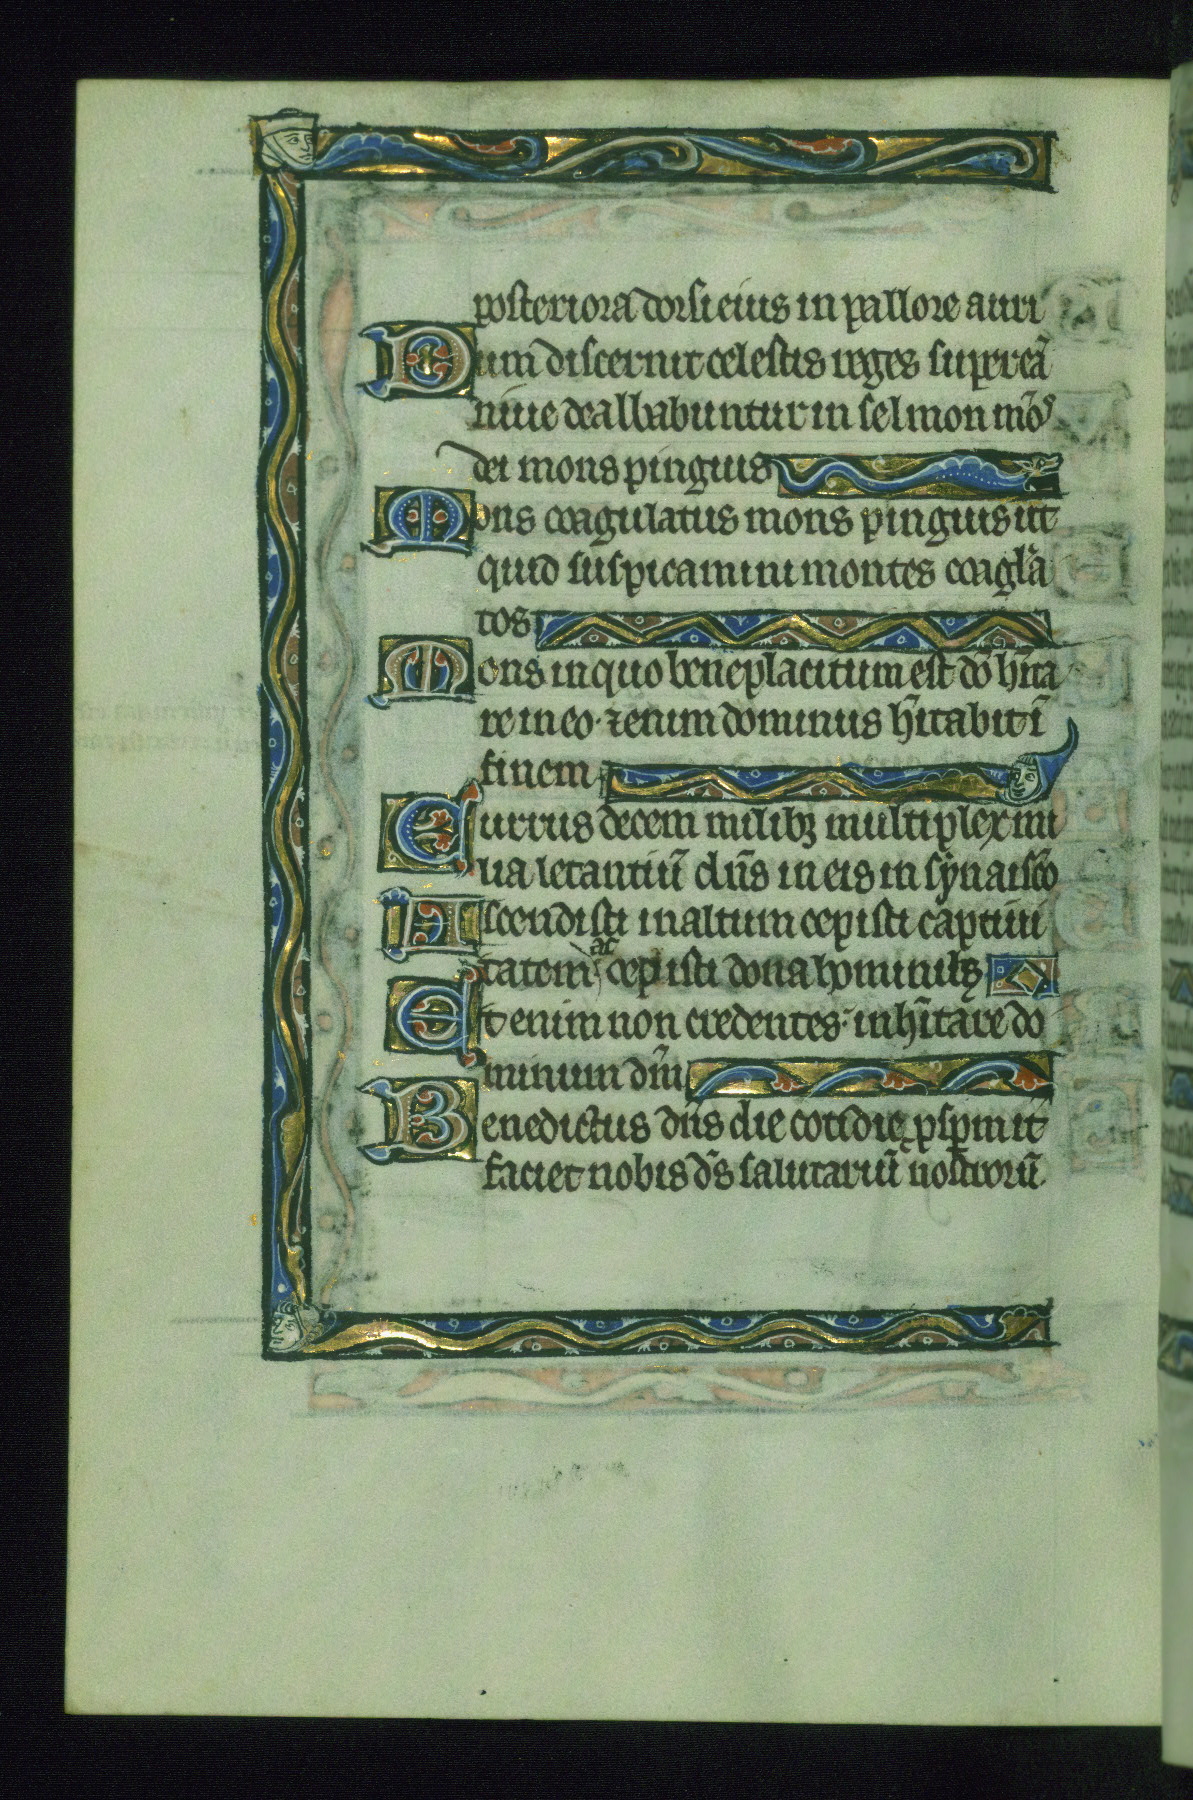 posteriora dorsi eius in pallore auri
Dum discernit celestis reges super eā
niue dealbabuntur in selmon mōs
dei mons pinguis
Mons coagulatus mons pinguis ut
quid suspicamini montes coagla
tos
Mons in quo beneplacitum est dō hīta
re in eo· ⁊enim dominus hītabit ī
finem
Currus decem milibꝫ multiplex mi
lia letantiū dn̄s in eis in syna ī sc̄o
Ascendisti in altum cepisti captiui
tatem ac̄ cepisti dona hominibꝫ
Et enim non credentes· inhītare do
minum dm̄
Benedictus dn̄s die cotidie ꝓspm it
faciet nobis ds̄ salutariū nostrorū